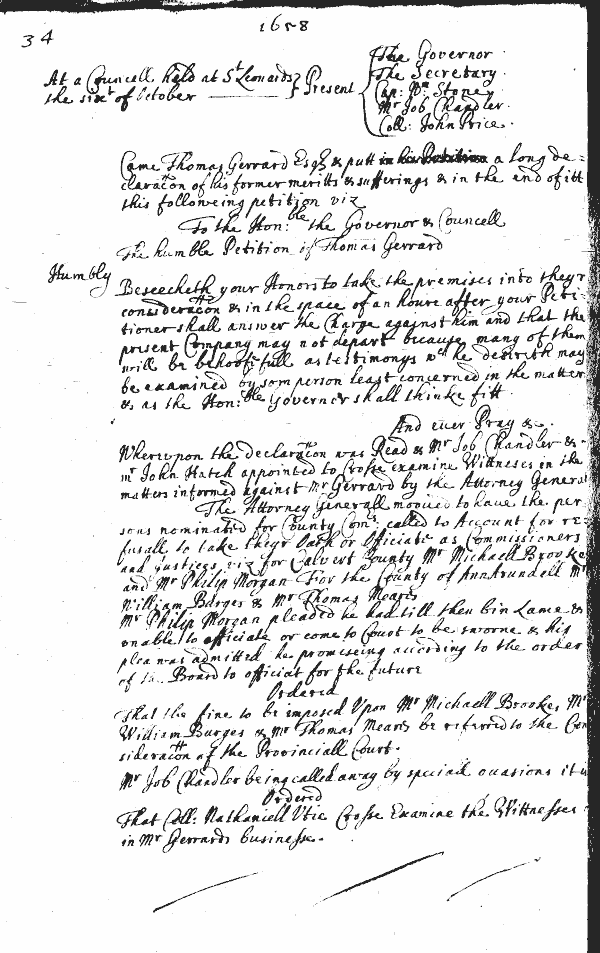 34
1658
At a Councell held at St Leonards
the sixt of October
Present
The Governor
The Secretary
Cap: Wm Stoney
Mr Job Chandler
Coll: John Price
Came Thomas Gerrard Esqr & putt in his Petition a long de=
claracon of his former meritts & sufferings & in the end of itt
this followeing petition viz
To the Hon:ble the Governor & Councell
The humble Petition of Thomas Gerrard
Humbly
Beseecheth your Honors to take the premises into theyr
consideracon & in the space of an houre after your Peti-
tioner shall answer the Charge against him and that the
present Company may not depart because many of them
will be behoofefull as testimonys wch he desireth may
be examined by som person least concerned in the matter
& as the Hon:ble Governor shall thinke fitt
And ever Pray &c.
Whereupon the declaracon was Read & Mr Job Chandler &
mr John Hatch appointed to Crosse examine Wittneses in the
matters informed against Mr Gerrard by the Attorney Generall
The Attorney Generall mooved to have the per
sons nominated for County Comrs called to Account for re=
fusall to take theyr Oath or Officiate as Commissioners
and Justices viz for Calvert County Mr Michaell Brooke
and Mr Philip Morgan For the County of AnnArundell Mr
William Burges & Mr Thomas Meares
Mr Philip Morgan pleaded he had till then bin Lame &
unable to officiate or come to Court to be sworne & his
plea was admitted he promiseing according to the order
of the Board to officiat for the future
Ordered
That the fine to be imposed Upon Mr Michaell Brooke, Mr
William Burges & Mr Thomas Meares be referred to the Con
sideracon of the Provinciall Court.
Mr Job Chandler being called away by speciall ocasions it is
Ordered
That Coll: Nathaniell Utie Crosse Examine the Wittnesses
in Mr Gerrards businesse.